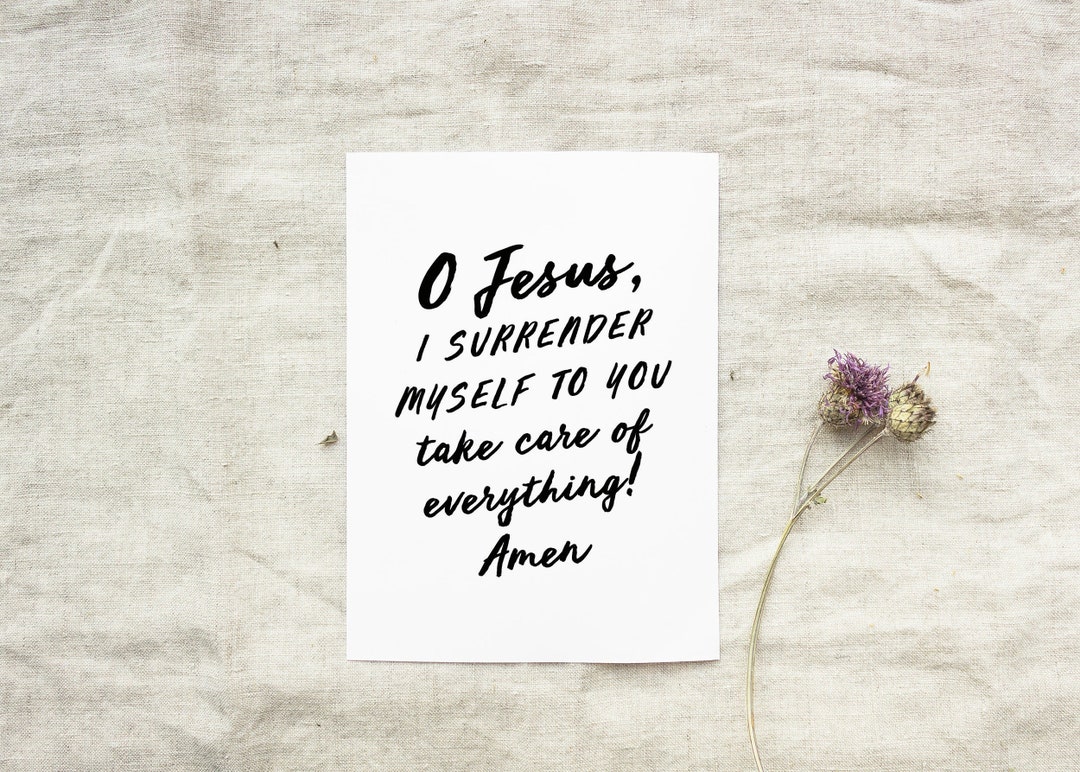 O Jesus,
I SURRENDER
MYSELF TO YOU
take care of
everything!
Amen